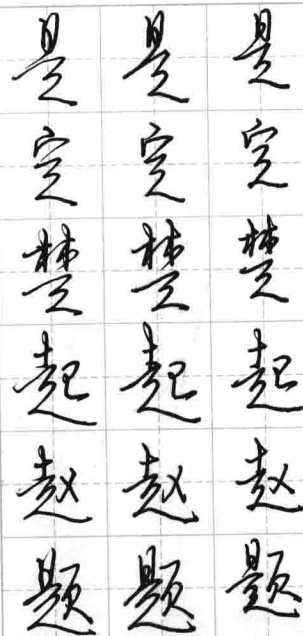 是 是 是
定 定 定
楚 楚 楚
起 起 起
赵 赵 赵
题 题 题